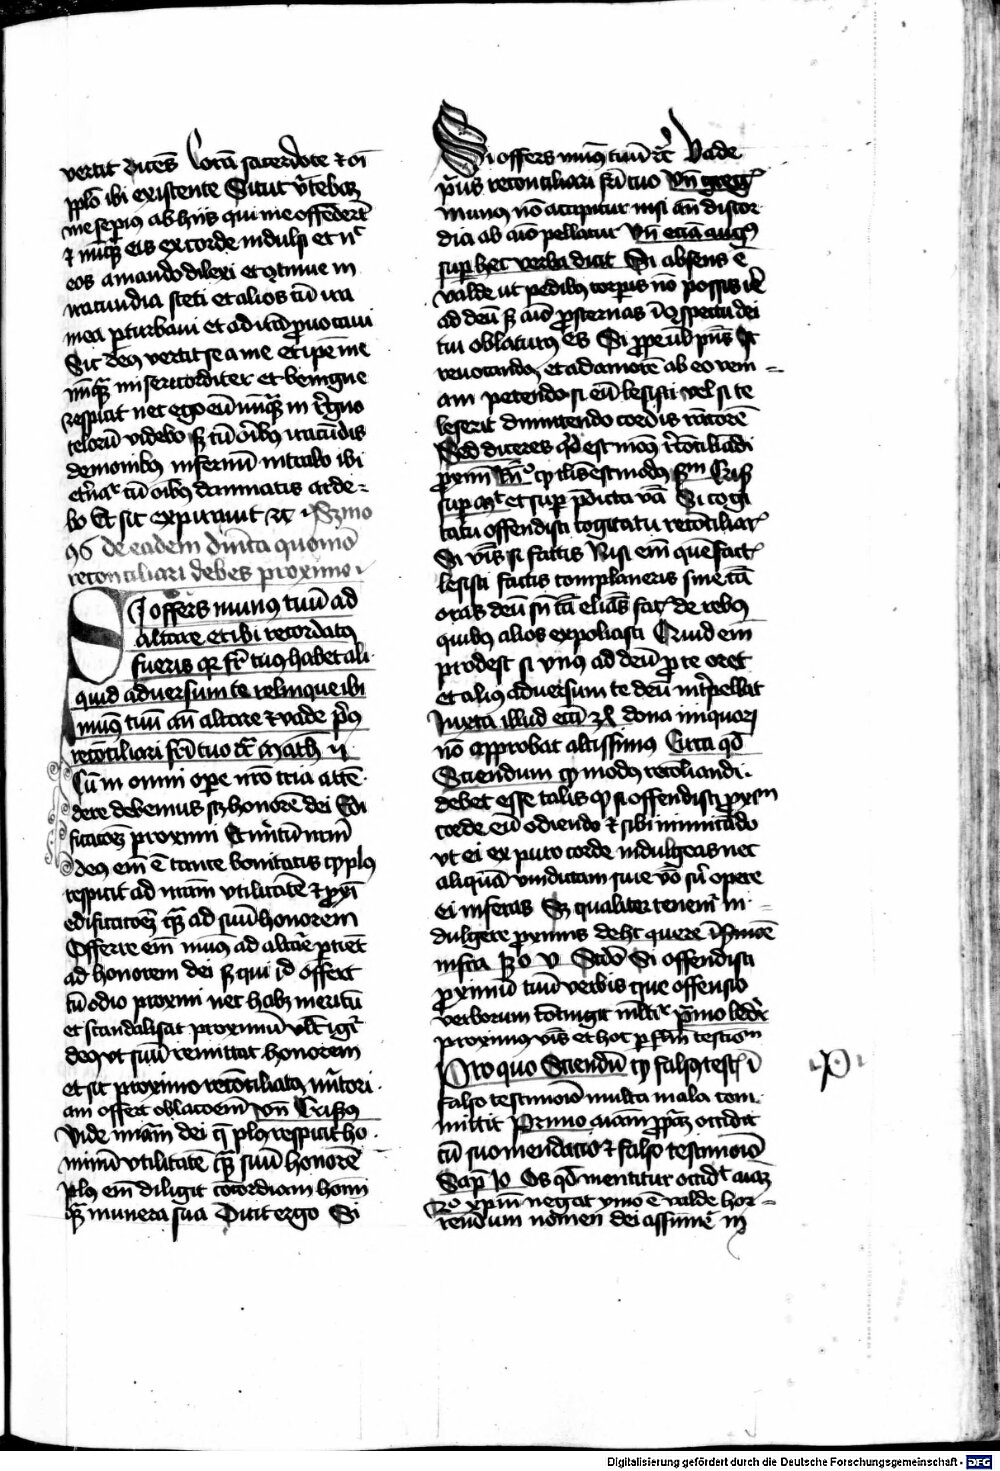 vertit dicēs Corā sacerdote et oī
pplo ibi existente Sicut vertebaꝫ
me sepius ab hiis qui me offederēt
et nūquā eis ex corde indulsi et nec
eos amando dilexi et continue in
iracundia steti et alios cū ira
mea pturbavi et ad iracūdiā provocavi
Sic deus vertit se a me et ipē me
nūquā misericorditer et benigne
respicit nec ego eū nūquā in regno
celorū videbo sꝫ cū oībus iracūdis
demonibus infernū intrabo ibi
eternaliter cū oībus damnatis arde-
bo Et sic expiravit etc Sermo
96 de eadem dnīca quomō
reconciliari debes proximo
Si offers munus tuū ad
altare et ibi recordatus
fueris quia fr̄ tuus habet ali
quid adversum te relinque ibi
munus tuū an̄ altare et vade prius
recōciliari frī tuo etc̄ Math v
Cū in omni opere nr̄o tria atten
dere debemus scꝫ honorē dei Edi
ficatoeꝫ proximi Et meritū nr̄m
deus em̄ ē tante bonitatis ꝙ plus
respicit ad nr̄am utilitatē et proximi
edificatoeꝫ quā ad suū honorem
Offerre em̄ munus ad altare ptinet
ad honorem dei sꝫ qui id offert
cū odio proximi nec habꝫ meritum
et scandalisat proximū vult igitur
deus ut suū remittat honorem
et sic proximo recōciliatus meritori
am offert oblacoem Unde Crisos
Vide miām dei que plus respicit ho
minū utilitatē quā suū honorē
plus em̄ diligit cōcordiam homī
quā munera sua Dicit ergo Si
Si offers munus tuū etc Vade
prius reconciliari frī tuo Un̄ greg
munus nō accipitur nisi an̄ discor
dia ab aīo pellatur Un̄ eciā augus
super hec verba dicit Si absens ē
valde ut pedibus corporis nō possis ire
ad deū sꝫ aīo prosternas in conspectu dei
cui oblaturus es Si prope vero pn̄s est
revocandus et ad amorē ab eo veni-
am petendo si eū lesisti vel si te
leserit dimittendo cordis rācorē
Sed diceres qd̄ est modus recōciliādi
proximū Rn̄o ꝙ talis est modus scdm Cris
super mt et super pdicta v̄ba Si cogi
tatu offendisti cogitatu recōciliare
Si v̄bis si factis Nisi em̄ quē fact
lesisti factis complaneris sine cā
oras deū sn̄ cā elias fac de rebus
quibus alios expoliasti Quid em̄
prodest si unus ad deū pro te oret
et alius adversum te deū interpellat
Juxta illud ecci 34 dona iniquorū
nō approbat altissimus Circa qd̄
Sciendum ꝙ modus recōliandi
debet esse talis ꝙ si offendisti proxm
corde eū odiendo et sibi inimicādo
ut ei ex puro corde indulgeas nec
aliquā vindictam sive vbo sive opere
ei inferas Sꝫ qualiter tenemur in
dulgere proximis de hoc quere in sermōe
infra Scdo Si offendisti
proximū tuū verbis que offensio
verborum cōtingit multipliciter primo ledit
proximus v̄bis et hoc p flm testiom
Pro quo Sciendū ꝙ falsus testis i
falso testimoio multa mala com
mittit Primo aīam ppam occidit
cū suo mendacio et falso testimoio
Sap 1o Os qd̄ mentitur occidit aīaꝫ
2o xpm̄ negat ymo ē valde hor-
rendum nomen dei assumere in